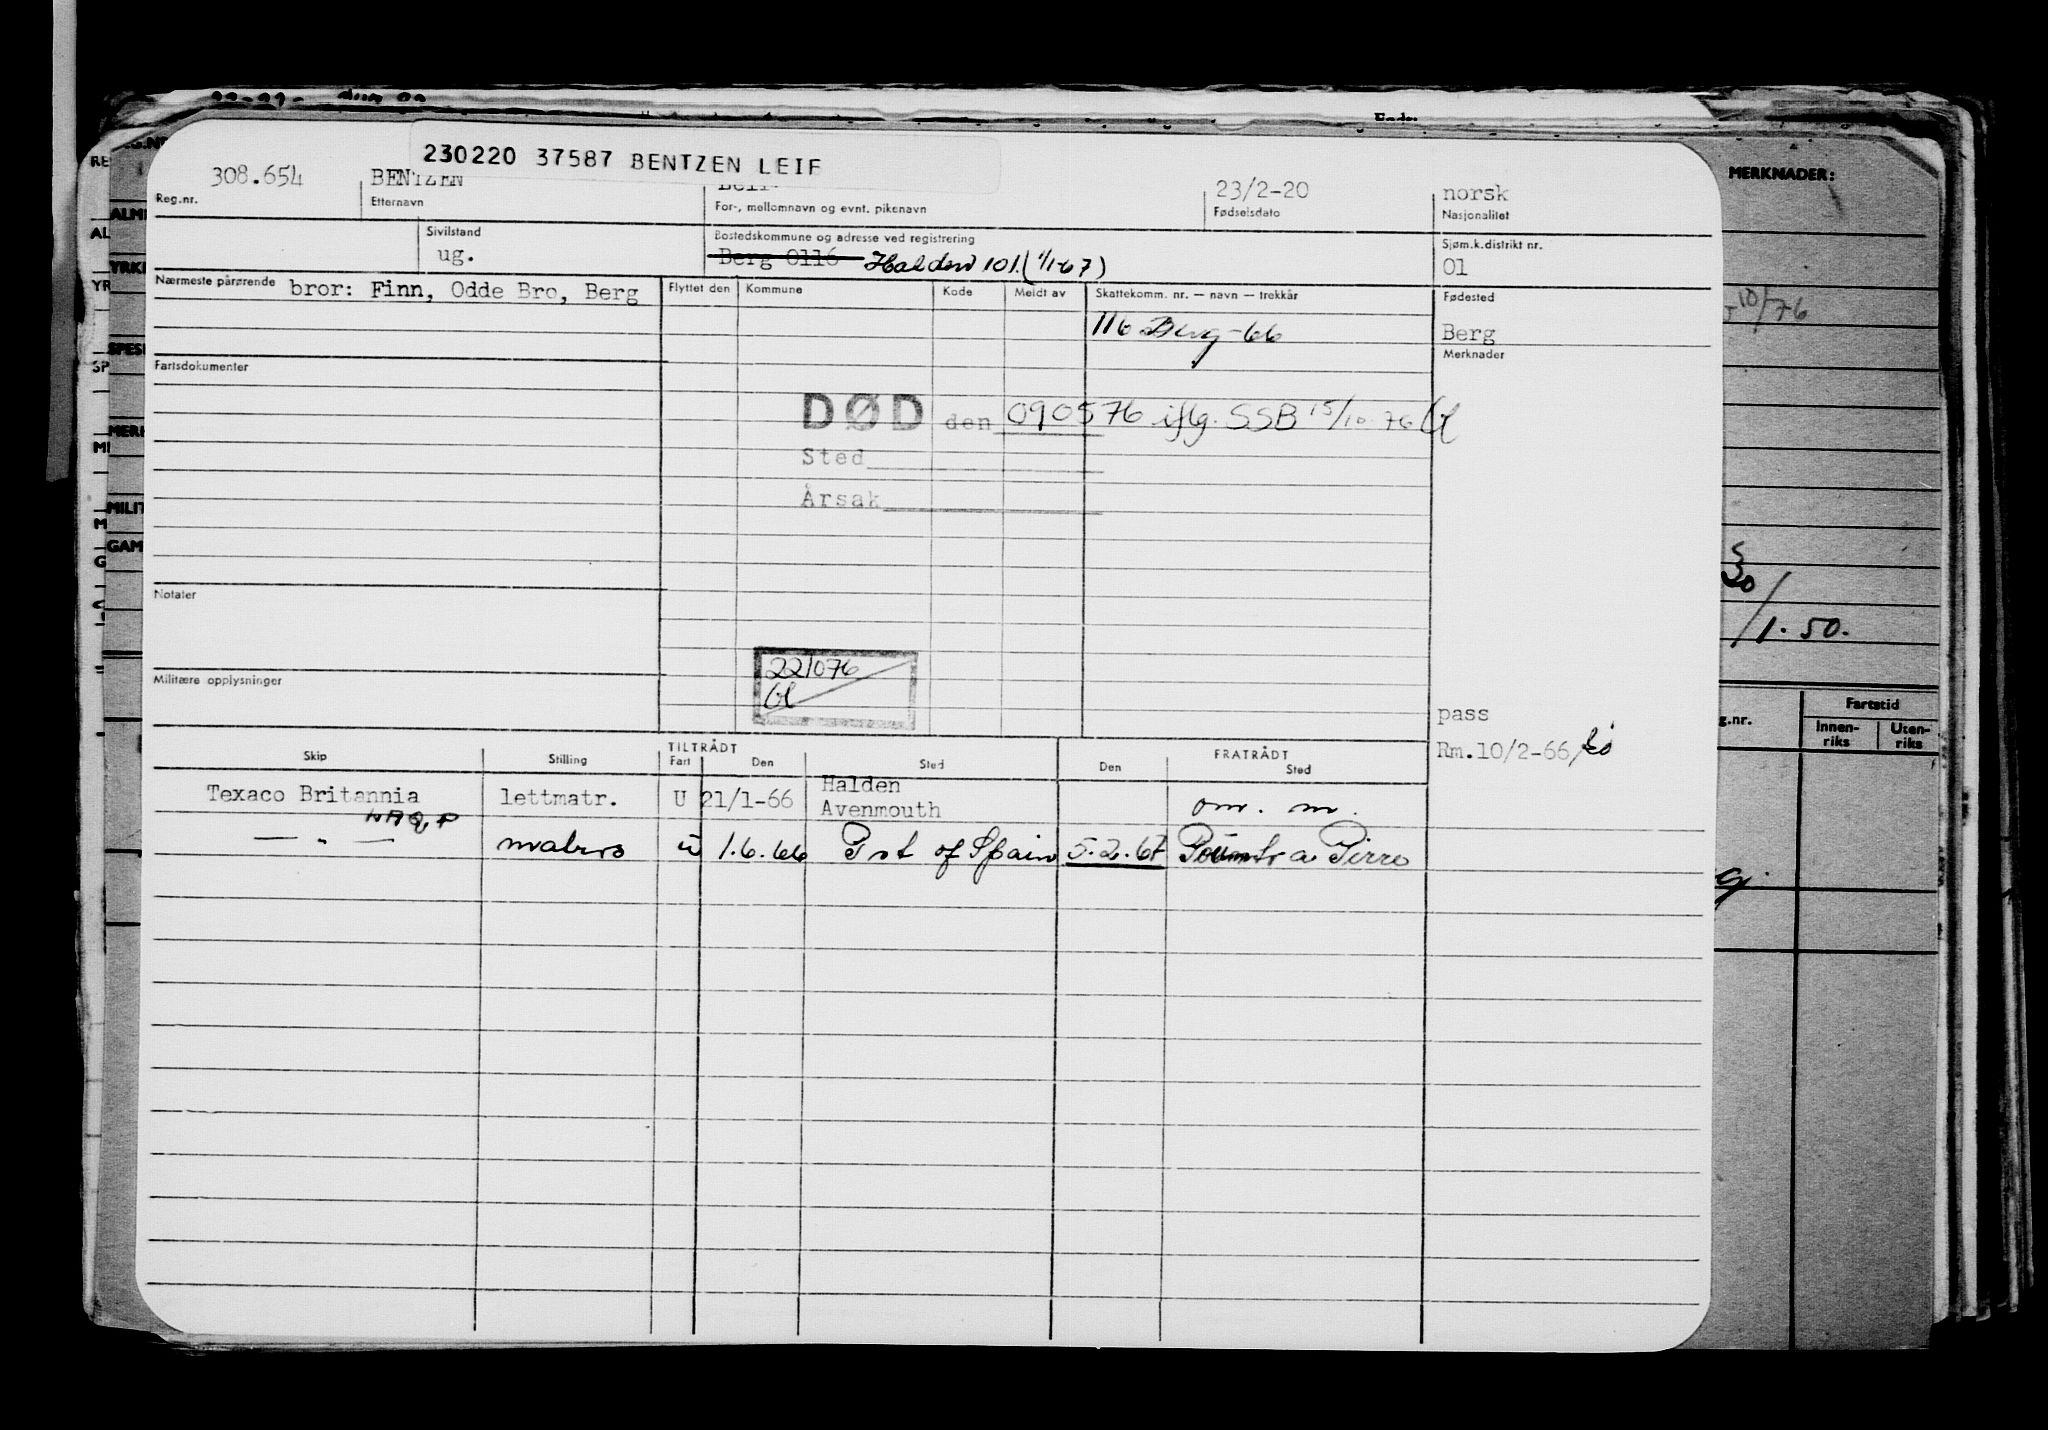 230220 37587 BENTZEN LEIF
308.654 BENTZEN 23/2-20 norsk
Reg.nr. Etternavn For-, mellomnavn og evnt. pikenavn Fødselsdato Nasjonalitet
Sivilstand Bostedskommune og adresse ved registrering Sjøm.k.distrikt nr.
ug. Berg 0116 Halden 101 (1/1-67) 01
Nærmeste pårørende bror: Finn, Odde Bro, Berg Flyttet den Kommune Kode Meldt av Skattekomm. nr. — navn — trekkår Fødested
116 Berg-66 Berg
Merknader
Fartsdokumenter
DØD den 090576 iflg. SSB 15/10-76
Sted
Årsak
Notater
221076
Militære opplysninger
pass
Rm.10/2-66/
Skip Stilling TILTRÅDT Fart Den Sted FRATRÅDT Den Sted
Texaco Britannia lettmatr. U 21/1-66 Halden
Avenmouth om. m.
LAQP
— " — matros u 1.6.66 P o t of Spain 5.2.67 Pointe a Pierre
MERKNADER:
10/76
/1.50.
g.nr. Fartstid
Innen-
riks Uten-
riks